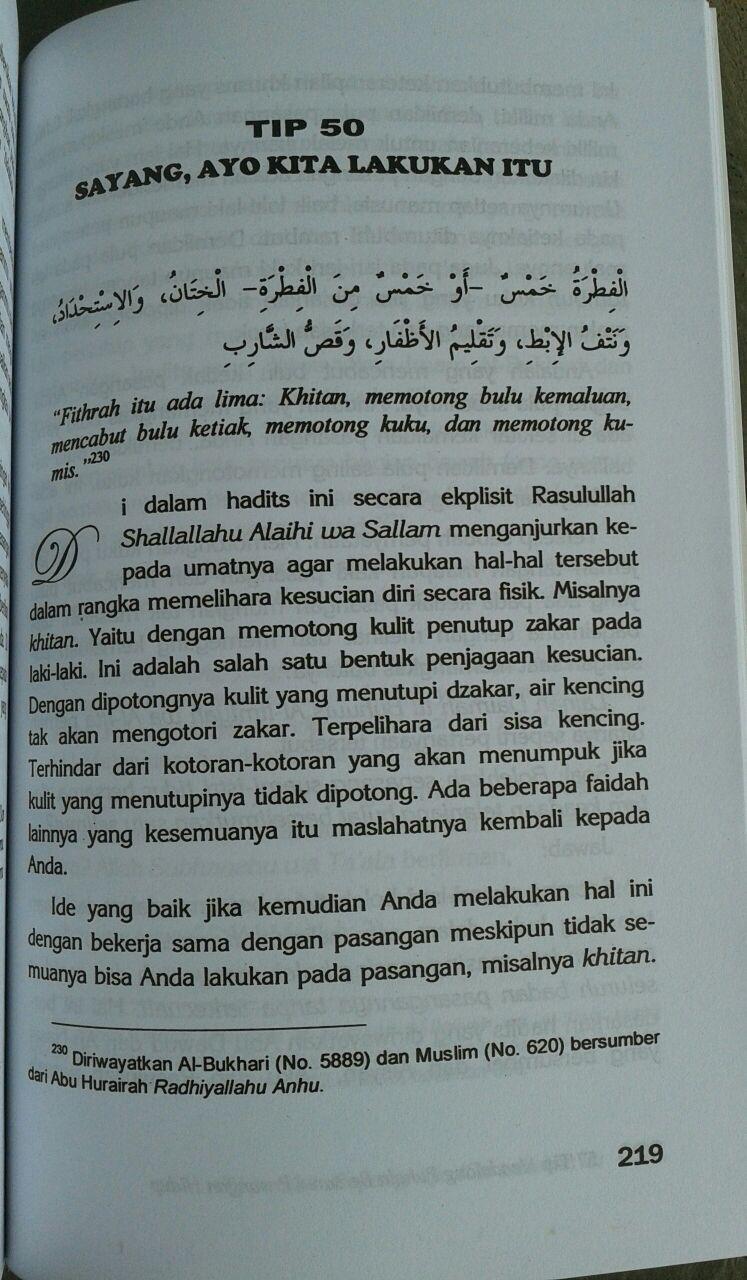 TIP 50
SAYANG, AYO KITA LAKUKAN ITU
الْفِطْرَةُ خَمْسٌ –أَوْ خَمْسٌ مِنَ الْفِطْرَةِ– الْخِتَانُ، وَالِاسْتِحْدَادُ،
وَنَتْفُ الإِبْطِ، وَتَقْلِيمُ الأَظْفَارِ، وَقَصُّ الشَّارِبِ
“Fithrah itu ada lima: Khitan, memotong bulu kemaluan,
mencabut bulu ketiak, memotong kuku, dan memotong ku-
mis.”230
Di dalam hadits ini secara ekplisit Rasulullah
Shallallahu Alaihi wa Sallam menganjurkan ke-
pada umatnya agar melakukan hal-hal tersebut
dalam rangka memelihara kesucian diri secara fisik. Misalnya
khitan. Yaitu dengan memotong kulit penutup zakar pada
laki-laki. Ini adalah salah satu bentuk penjagaan kesucian.
Dengan dipotongnya kulit yang menutupi dzakar, air kencing
tak akan mengotori zakar. Terpelihara dari sisa kencing.
Terhindar dari kotoran-kotoran yang akan menumpuk jika
kulit yang menutupinya tidak dipotong. Ada beberapa faidah
lainnya yang kesemuanya itu maslahatnya kembali kepada
Anda.
Ide yang baik jika kemudian Anda melakukan hal ini
dengan bekerja sama dengan pasangan meskipun tidak se-
muanya bisa Anda lakukan pada pasangan, misalnya khitan.
230 Diriwayatkan Al-Bukhari (No. 5889) dan Muslim (No. 620) bersumber
dari Abu Hurairah Radhiyallahu Anhu.
219